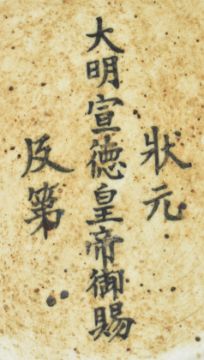 狀元
大明宣徳皇帝御賜
及第